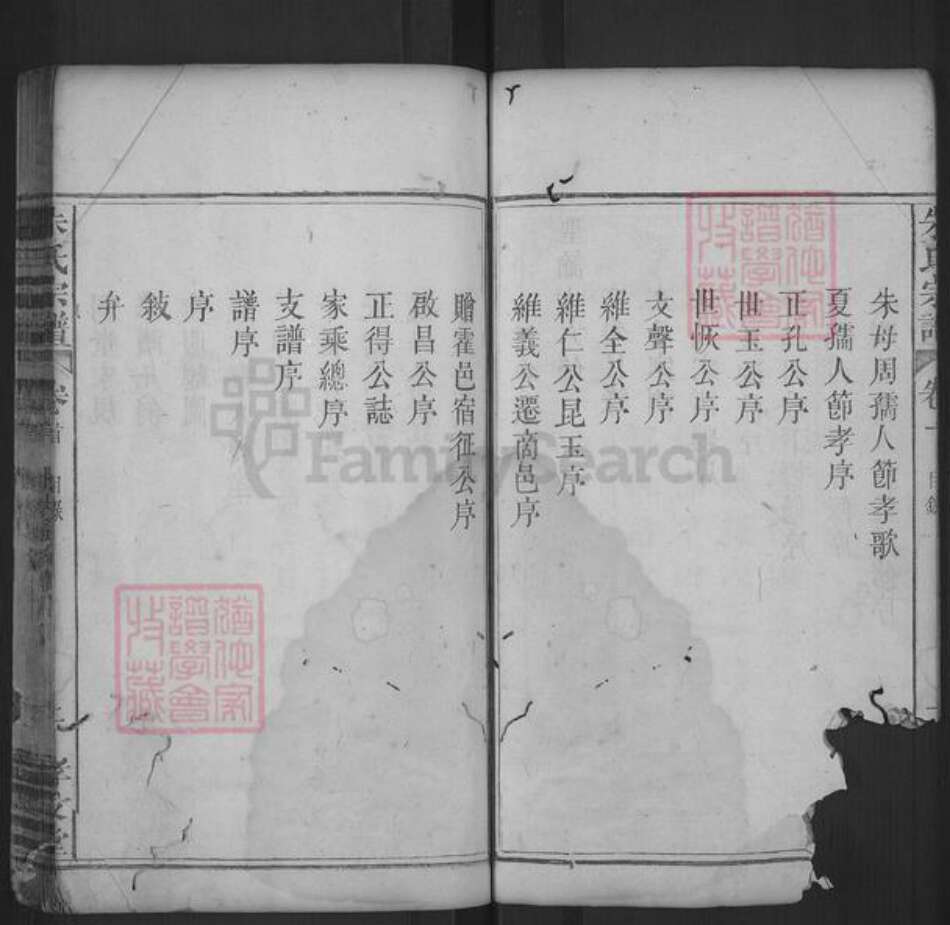 朱母周孺人節孝歌
夏孺人節孝序
正孔公序
世玉公序
世恢公序
文聲公序
維全公序
維仁公昆玉序
維義公遷商邑序
贈霍邑宿征公序
啟昌公序
正得公誌
家乘總序
支譜序
譜序
序
敍
弁
朱氏宗譜
卷首
目錄
朱氏宗譜
卷
目錄
猶他家譜學會收藏
猶他家譜學會收藏
FamilySearch